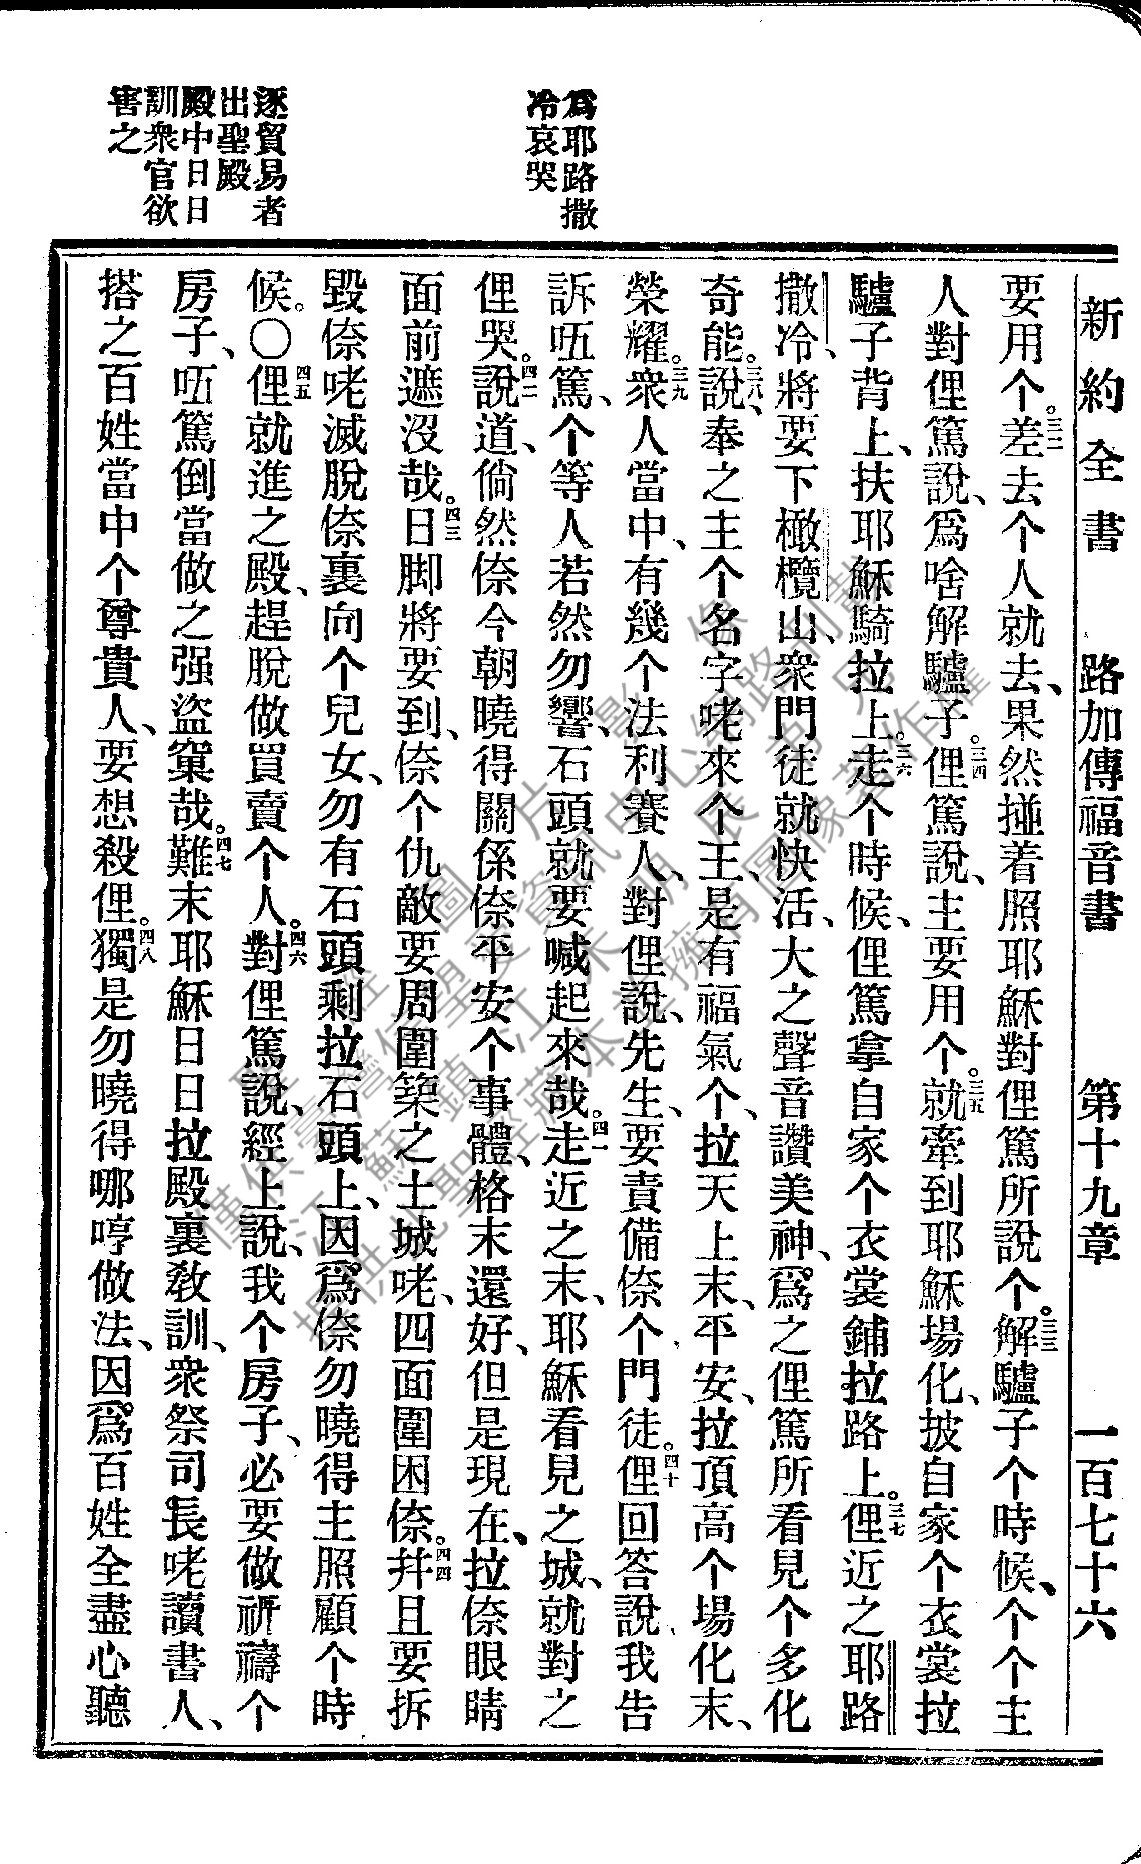 新約全書　路加傳福音書　第十九章　一百七十六
要用个。三二差去个人就去、果然撞着照耶穌對俚篤所說个。三三解驢子个時候、个个主
人對俚篤說、爲啥解驢子。三四俚篤說、主要用个。三五就牽到耶穌場化、披自家个衣裳拉
驢子背上、扶耶穌騎拉上。三六走个時候、俚篤拿自家个衣裳鋪拉路上。三七俚近之耶路
撒冷、將要下橄欖山、衆門徒就快活、大之聲音讚美神、爲之俚篤所看見个多化
奇能。三八說、奉之主个名字咾來个王、是有福氣个、拉天上末、平安、拉頂高个場化末、
榮耀。三九衆人當中、有幾个法利賽人、對俚說、先生、要責備倷个門徒。四十俚回答說、我告
訴唔篤、个等人若然勿響、石頭就要喊起來哉。四一走近之末、耶穌看見之城、就對之
俚哭。四二說道、倘然倷今朝曉得關係倷平安个事體、格末還好、但是現在、拉倷眼睛
面前遮沒哉。四三日脚將要到、倷个仇敵要周圍築之土城咾、四面圍困倷。四四幷且要拆
毀倷咾滅脫倷裏向个兒女、勿有石頭剩拉石頭上、因爲倷勿曉得主照顧个時
候。〇四五俚就進之殿、趕脫做買賣个人。四六對俚篤說、經上說、我个房子、必要做祈禱个
房子、唔篤倒當做之强盜窠哉。四七難末耶穌日日拉殿裏敎訓、衆祭司長咾讀書人、
搭之百姓當中个尊貴人、要想殺俚。四八獨是勿曉得哪哼做法、因爲百姓全盡心聽
爲耶路撒
冷哀哭
逐貿易者
出聖殿
殿中日日
訓衆官欲
害之